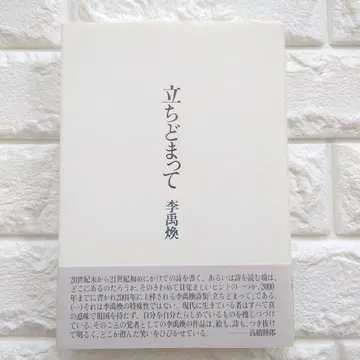 立ちどまって
李禹煥
20世紀末から21世紀初めにかけての詩を書く、あるいは詩を読む場は、
どこにあるのだろうか。そのきわめて目覚ましいヒントの一つが、2000
年までに書かれ2001年に上梓される李禹煥詩集『立ちどまって』である。
(…)それは李禹煥の特殊性ではない。現代に生きている者はすべて真
の意味で祖国を持たず、自分を自分たらしめているものを捜しつづけて
いる。そのことの覚者としての李禹煥の作品は、絵も、詩も、つき抜け
て明るく、どこか澄んだ笑いをひびかせている。 高橋睦郎